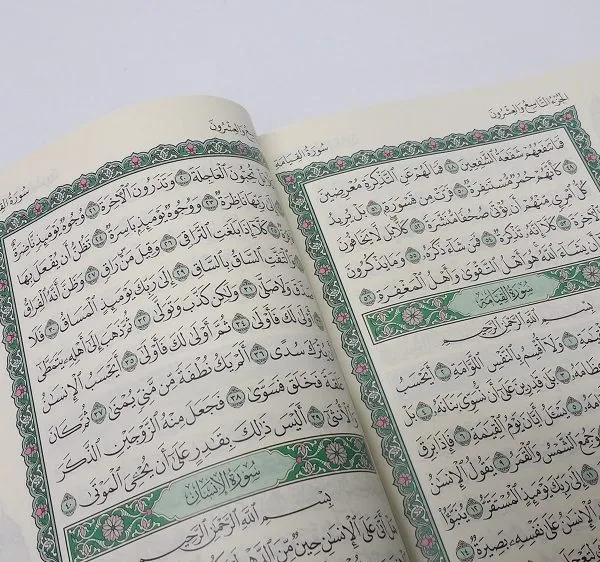 سُورَةُ القِيَامَةِ الجُزْءُ التَّاسِعُ وَالعِشْرُونَ
فَمَا تَنفَعُهُمْ شَفَٰعَةُ ٱلشَّٰفِعِينَ ٤٨ فَمَا لَهُمْ عَنِ ٱلتَّذْكِرَةِ مُعْرِضِينَ
٤٩ كَأَنَّهُمْ حُمُرٌ مُّسْتَنفِرَةٌ ٥٠ فَرَّتْ مِن قَسْوَرَةٍ ٥١ بَلْ يُرِيدُ
كُلُّ ٱمْرِئٍ مِّنْهُمْ أَن يُؤْتَىٰ صُحُفًا مُّنَشَّرَةً ٥٢ كَلَّا بَل لَّا يَخَافُونَ
ٱلْأَخِرَةَ ٥٣ كَلَّآ إِنَّهُۥ تَذْكِرَةٌ ٥٤ فَمَن شَآءَ ذَكَرَهُۥ ٥٥ وَمَا يَذْكُرُونَ
إِلَّآ أَن يَشَآءَ ٱللَّهُ هُوَ أَهْلُ ٱلتَّقْوَىٰ وَأَهْلُ ٱلْمَغْفِرَةِ ٥٦
سُورَةُ القِيَامَةِ
بِسْمِ ٱللَّهِ ٱلرَّحْمَٰنِ ٱلرَّحِيمِ
ٱلْقِيَٰمَةِ ١ وَلَآ أُقْسِمُ بِٱلنَّفْسِ ٱللَّوَّامَةِ ٢ أَيَحْسَبُ
عِظَامَهُۥ ٣ بَلَىٰ قَٰدِرِينَ عَلَىٰٓ أَن نُّسَوِّىَ بَنَانَهُۥ ٤ بَلْ
٥ يَسْـَٔلُ أَيَّانَ يَوْمُ ٱلْقِيَٰمَةِ ٦ فَإِذَا بَرِقَ
وَجُمِعَ ٱلشَّمْسُ وَٱلْقَمَرُ ٩ يَقُولُ ٱلْإِنسَٰنُ
إِلَىٰ رَبِّكَ يَوْمَئِذٍ ٱلْمُسْتَقَرُّ ١٢ يُنَبَّؤُا۟
ٱلْإِنسَٰنُ عَلَىٰ نَفْسِهِۦ بَصِيرَةٌ ١٤
وَالعِشْرُونَ سُورَةُ
تُحِبُّونَ ٱلْعَاجِلَةَ ٢٠ وَتَذَرُونَ ٱلْأَخِرَةَ ٢١ وُجُوهٌ يَوْمَئِذٍ نَّاضِرَةٌ
رَبِّهَا نَاظِرَةٌ ٢٣ وَوُجُوهٌ يَوْمَئِذٍۭ بَاسِرَةٌ ٢٤ تَظُنُّ أَن يُفْعَلَ بِهَا
٢٥ كَلَّآ إِذَا بَلَغَتِ ٱلتَّرَاقِىَ ٢٦ وَقِيلَ مَنْ رَاقٍ ٢٧ وَظَنَّ أَنَّهُ ٱلْفِرَاقُ
وَٱلْتَفَّتِ ٱلسَّاقُ بِٱلسَّاقِ ٢٩ إِلَىٰ رَبِّكَ يَوْمَئِذٍ ٱلْمَسَاقُ ٣٠ فَلَا
وَلَا صَلَّىٰ ٣١ وَلَٰكِن كَذَّبَ وَتَوَلَّىٰ ٣٢ ثُمَّ ذَهَبَ إِلَىٰٓ أَهْلِهِۦ يَتَمَطَّىٰٓ
لَكَ فَأَوْلَىٰ ٣٤ ثُمَّ أَوْلَىٰ لَكَ فَأَوْلَىٰٓ ٣٥ أَيَحْسَبُ ٱلْإِنسَٰنُ
يُتْرَكَ سُدًى ٣٦ أَلَمْ يَكُ نُطْفَةً مِّن مَّنِىٍّ يُمْنَىٰ ٣٧ ثُمَّ كَانَ
عَلَقَةً فَخَلَقَ فَسَوَّىٰ ٣٨ فَجَعَلَ مِنْهُ ٱلزَّوْجَيْنِ ٱلذَّكَرَ
وَٱلْأُنثَىٰٓ ٣٩ أَلَيْسَ ذَٰلِكَ بِقَٰدِرٍ عَلَىٰٓ أَن يُحْـِۧىَ ٱلْمَوْتَىٰ ٤٠
سُورَةُ الإِنسَانِ
بِسْمِ ٱللَّهِ ٱلرَّحْمَٰنِ ٱلرَّحِيمِ
أَتَىٰ عَلَى ٱلْإِنسَٰنِ حِينٌ مِّنَ ٱلدَّهْرِ